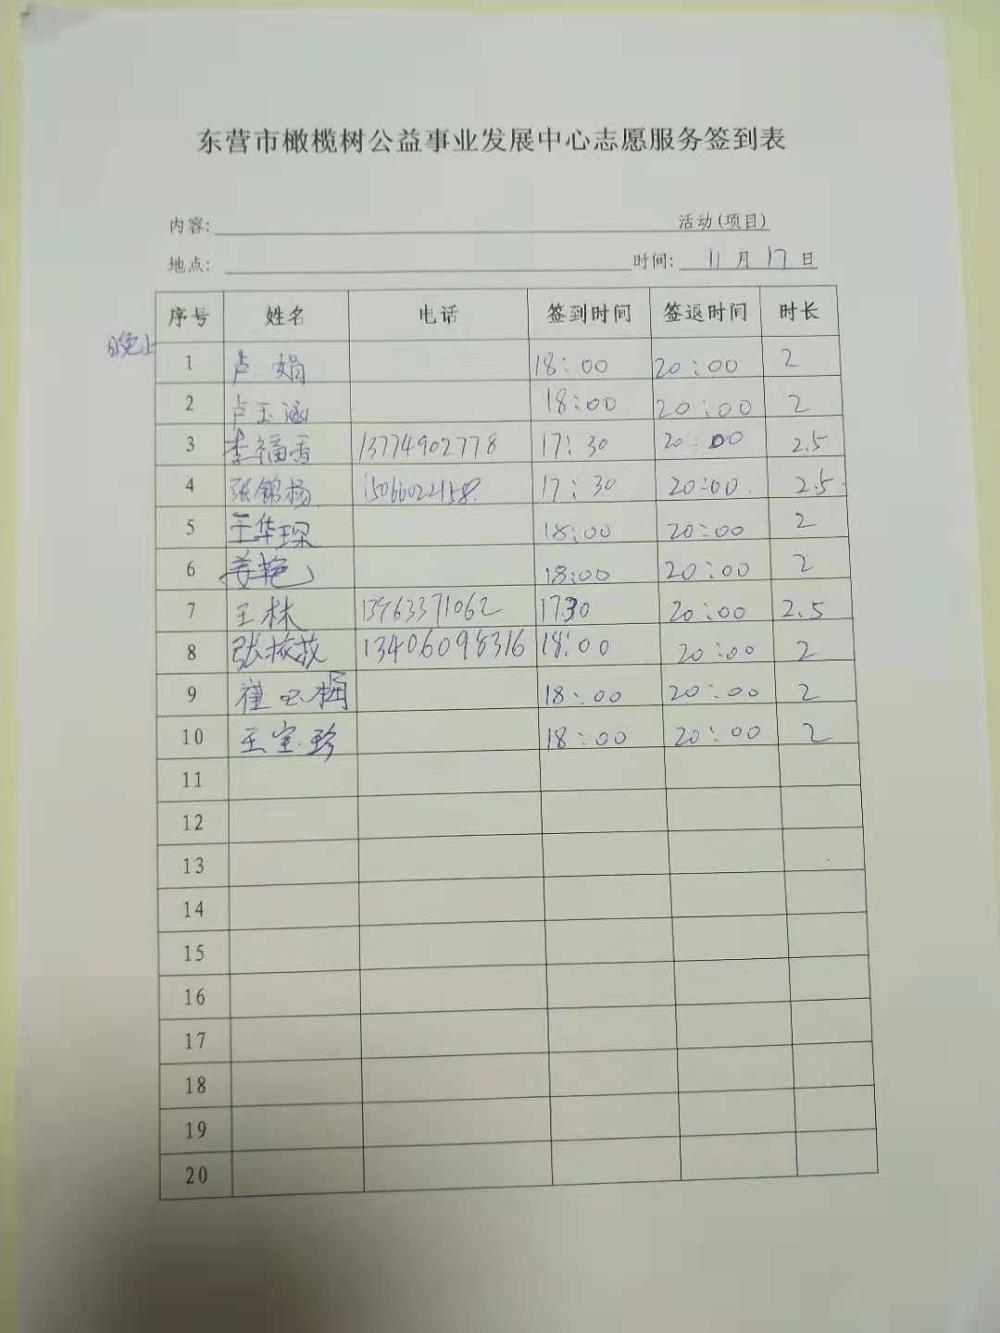 东营市橄榄树公益事业发展中心志愿服务签到表
内容: 活动(项目)
地点: 时间: 11 月 17 日
序号 姓名 电话 签到时间 签退时间 时长
晚上
1 卢娟 18:00 20:00 2
2 卢玉涵 18:00 20:00 2
3 李福香 13774902778 17:30 20:00 2.5
4 张锦杨 15066022158 17:30 20:00 2.5
5 王华琛 18:00 20:00 2
6 姜艳 18:00 20:00 2
7 王林 13963371062 1730 20:00 2.5
8 13406098316 18:00 20:00 2
9 18:00 20:00 2
10 王宝珍 18:00 20:00 2
11
12
13
14
15
16
17
18
19
20